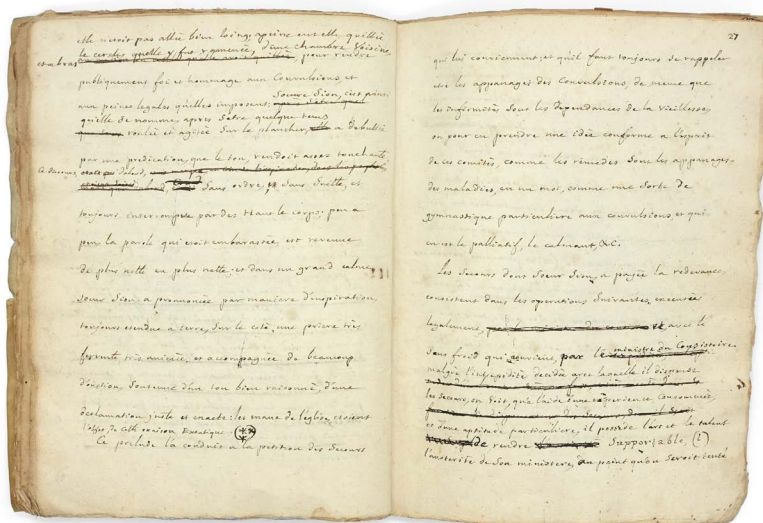 elle n'etoit pas allée bien loing; apeine eut elle quittée
le cercle, quelle y fut ramenée, d'une chambre voisine
et un bras pour rendre
publiquement foi et hommage aux Convulsions, et
aux peines legales quelles imposent;
Soeure Sion, c'est ainsi
qu'elle se nomme, après s'être quelque tems
roulée et agitée sur le plancher, a debuttée
par une predication, que le ton, rendoit assez touchante,
Ce discours,
Sans ordre, Sans Suitte, et
toujours interrompue par des Maux le corps; peu a
peu la parole qui etoit embarassée, est revenue
de plus nette en plus nette; et dans un grand calme
Soeur Sion a prononcée par maniere d'inspiration,
toujours etendue a terre, Sur le coté, une priere très
fervente très animée, et accompagnée de beaucoup
d'onction, Soutenue d'un ton bien raisonné, d'une
declamation noble et exacte: les maux de l'église, etoient
l'objet de cette oraison Extatique
Ce prelude l'a conduite a la petition des Secours
27
qui lui conviennent, et qu'il faut toujours se rappeler
etre les appanages des Convulsions, de meme que
les infirmités Sont les dependances de la Vieillesse,
ou pour en prendre une idée conforme a l'esprit
de ces comités, comme les remedes Sont les appanages
des maladies, en un mot, comme une Sorte de
gymnastique particuliere aux convulsions, et qui
en est le palliatif, le calmant, &c.
Les Secours dont Soeur Sion, a payée la redevance,
consistent dans les operations Suivantes, executées
legalement, avec le
Sang froid qui convient, par le ministre du Consistoire
malgré l'intrepidité decidée avec laquelle il dispense
les Secours, on Sait, qu'a l'aide d'une experience consommée,
et d'une aptitude particuliere, il possede l'art et le talent
de rendre Supportable,
l'austerité de Son ministere, au point qu'on Seroit tenté